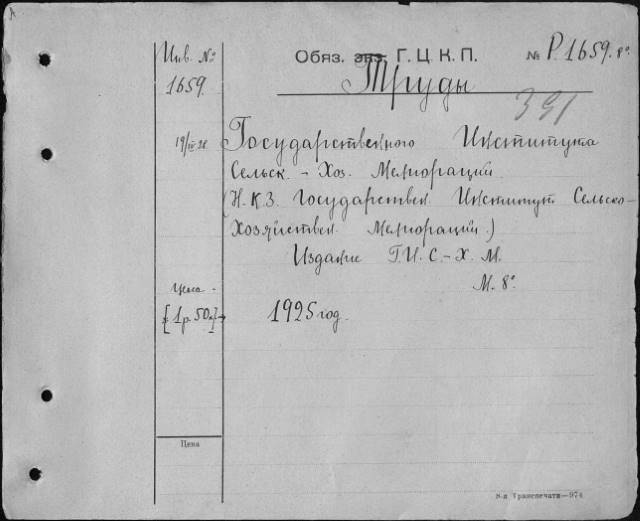 Инв. №
1659.
Обяз. экз. Г. Ц. К. П.
№ Р.1659. 8°.
Труды
391
19/III 28
Государственного Института
Сельск. - Хоз. Мелиорации.
(Н.К.З. Государствен. Институт Сельско-
Хозяйствен. Мелиорации.)
Издание Г.И.С.-Х.М.
М. 8°
Цена -
[1 р. 50 к.]
1925 год.
Цена
8-я Транспечати—974